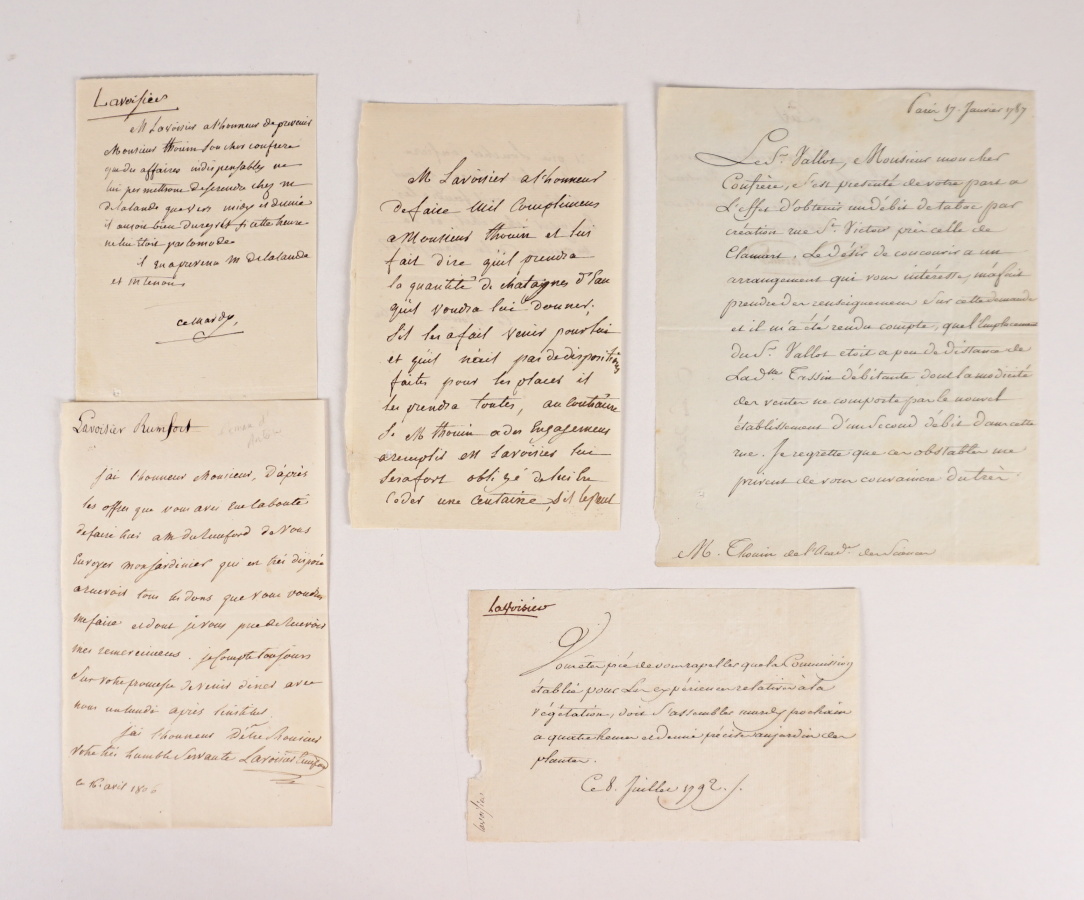 Lavoisier
M Lavoisier a l'honneur de prevenir
Monsieur thouin son cher confrere
que des affaires indispensables ne
lui permettrone de se rendre chez me
delalande que vers midy et demie
il auroit bien du regret si cette heure
ne lui étoit pas comode
il en a prevenu M delalande
et M tenon
ce mardy,
Lavoisier Rumfort
J'ai l'honneur Monsieur, d'après
les offres que vous avez eue la bonté
de faire hier a M de Rumford de Vous
Envoyer mon jardinier qui est très disposé
a recevoir tous les dons que vous voudrez
me faire et dont je vous prie de recevoir
mes remerciemens. je compte toujours
Sur votre promesse de venir diner avec
nous un lundi après l'institut
j'ai l'honneur D'être Monsieur
votre très humble Servante Lavoisier Rumford
ce 16 avril 1806
M Lavoisier a l'honneur
de faire Mil Complimens
a Monsieur thouin et lui
fait dire qu'il prendra
la quantité de chataignes d'Eau
qu'il voudra lui donner;
S'il les a fait venir pour lui
et qu'il n'e ait pas de dispositions
faites pour les placer il
les prendra toutes, au contraire
Si M thouin a des Engagemens
a remplir M Lavoisier lui
Sera fort obligé de lui en
Ceder une Centaine, S'il le peut
Paris 17. Janvier 1787
Le Sr. Vallot, Monsieur mon cher
Confrère, s'est presenté de votre part a
l'effet d'obtenir un débit de tabac par
création rue St. Victor près celle de
Clamart. Le désir de concourir a un
arrangement qui vous intéresse, m'a fait
prendre des renseignemens Sur cette demande
et il m'a été rendu compte, que l'Emplacement
du Sr. Vallot etoit a peu de distance de
La dme Tassin débitante dont la modicité
des ventes ne comporte pas le nouvel
établissement d'un Second débit dans cette
rue. Je regrette que ces obstacles me
privent de vous convaincre du très
M. Thouin de l'Acad. des Sciences
Lavoisier
Vous êtes prié de vous rapeller que la Commission
établie pour les expériences relatives à la
végétation, doit S'assembler mardy prochain
a quatre heures et demie précise au jardin des
plantes.
Ce 8. Juillet 1792.
Lavoisier